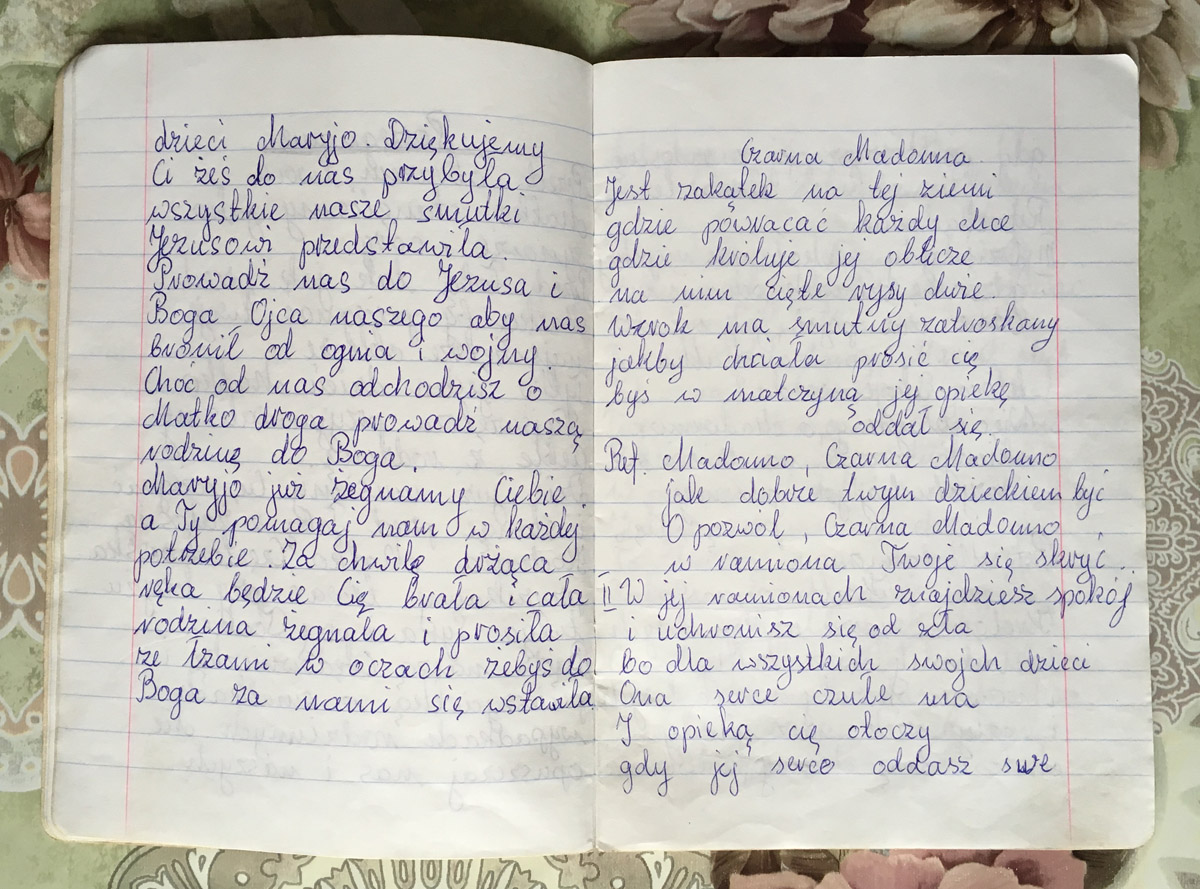 dzieci Maryjo. Dziękujemy
Ci żeś do nas przybyła
wszystkie nasze smutki
Jezusowi przedstawiła.
Prowadź nas do Jezusa i
Boga Ojca naszego aby nas
bronił od ognia i wojny.
Choć od nas odchodzisz o
Matko droga prowadź naszą
rodzinę do Boga.
Maryjo już żegnamy Ciebie
a Ty pomagaj nam w każdy
potrzebie. Za chwilę drżąca
ręka będzie Cię brała i cała
rodzina żegnała i prosiła
ze łzami w oczach żebyś do
Boga za nami się wstawiła
Czarna Madonna
Jest zakątek na tej ziemi
gdzie powracać każdy chce
gdzie króluje jej oblicze
na nim cięte rysy dwie.
Wzrok ma smutny zatroskany
jakby chciała prosić cię
byś w matczyną jej opiekę
oddał się.
Ref. Madonno, Czarna Madonno
jak dobrze twym dzieckiem być
O pozwól, Czarna Madonno
w ramiona Twoje się skryć.
II W jej ramionach znajdziesz spokój
i uchronisz się od zła
bo dla wszystkich swojch dzieci
Ona serce czułe ma
I opieką cię otoczy
gdy jej serce oddasz swe